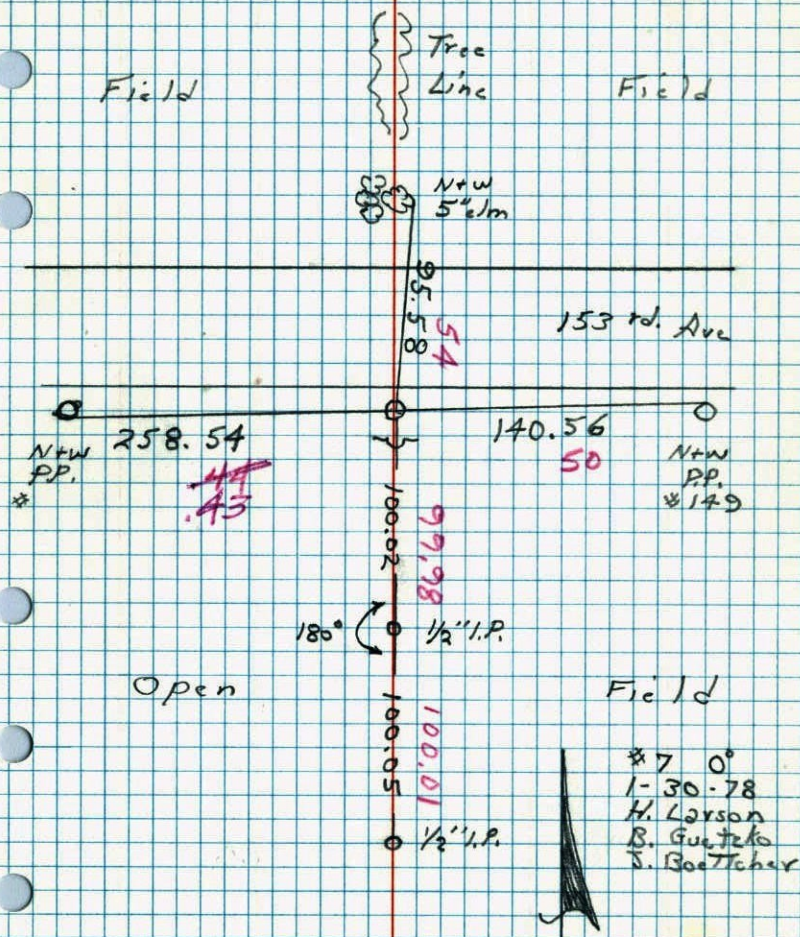 Tree
Line
Field
Field
N+W
5" elm
95.58
54
153 rd. Ave
258.54
44
.43
140.56
50
N+W
P.P.
#
N+W
P.P.
#149
100.02
99.98
180°
1/2" I.P.
Open
Field
100.05
100.01
1/2" I.P.
#7 0°
1-30-78
H. Larson
B. Guetzko
J. Boettcher